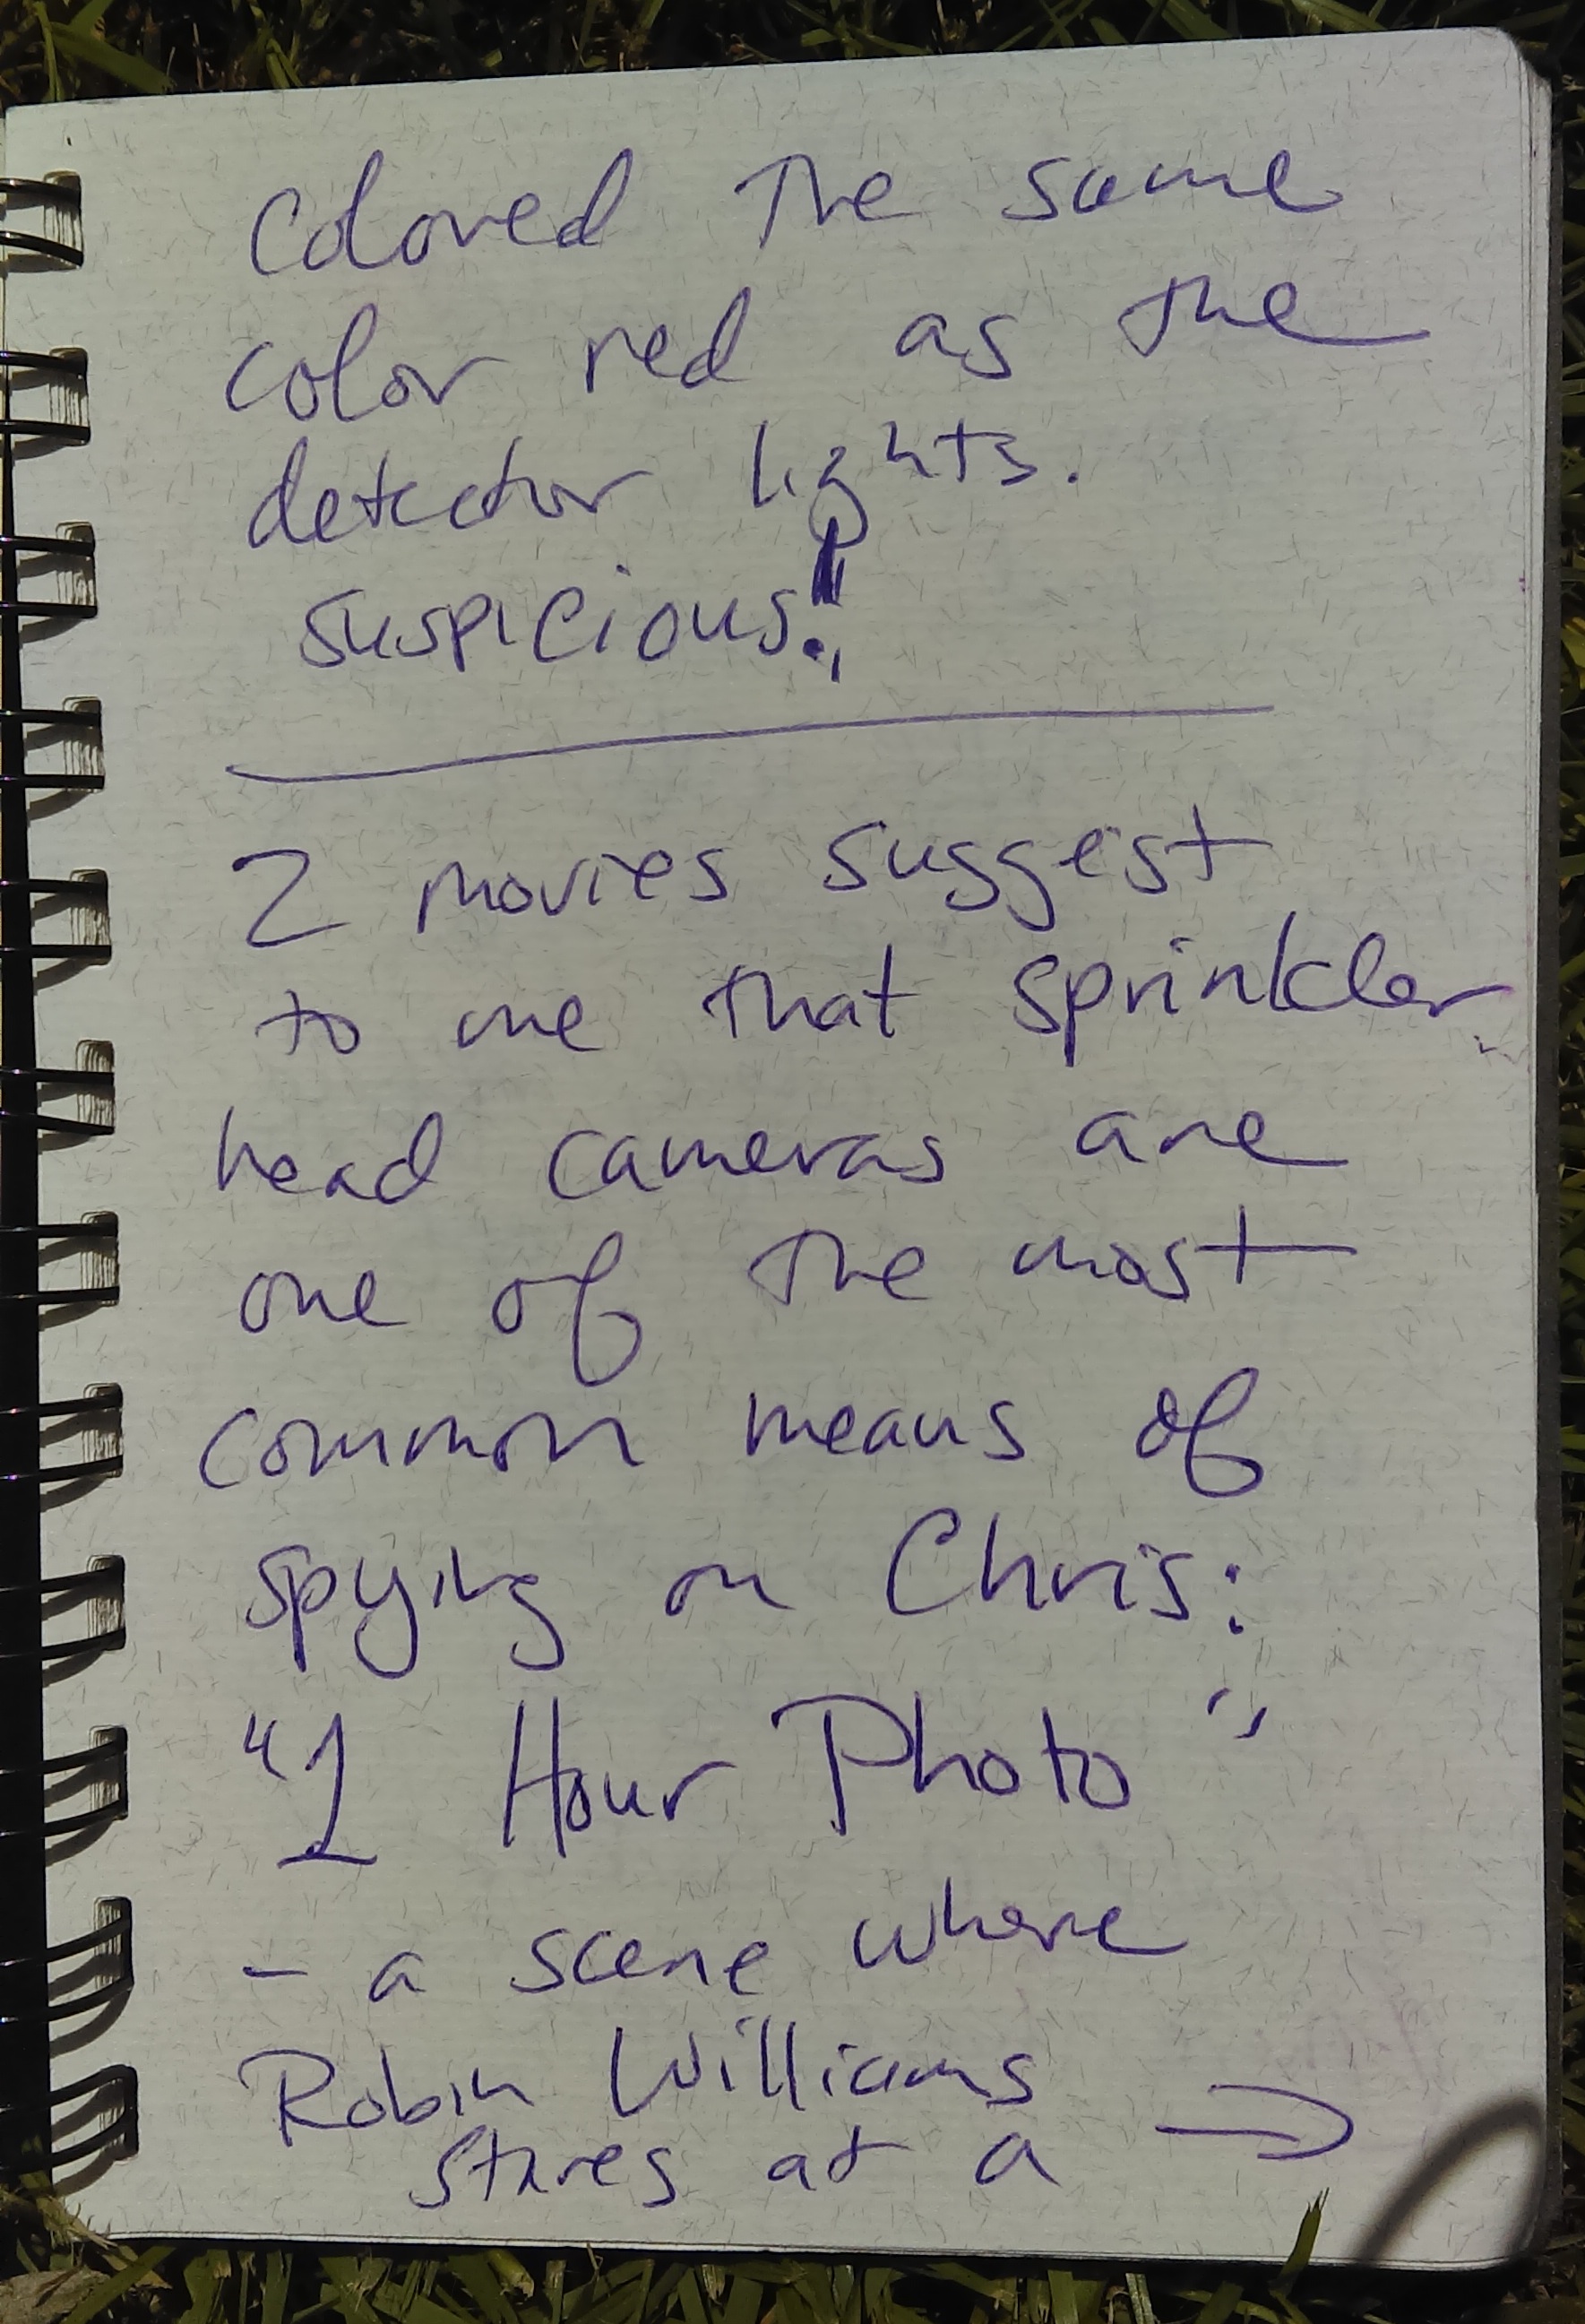 colored the same
color red as the
detector lights.
suspicious!!
2 movies suggest
to me that sprinkler
head cameras are
one of the most
common means of
spying on Chris:
"1 Hour Photo"
- a scene where
Robin Williams
stares at a →